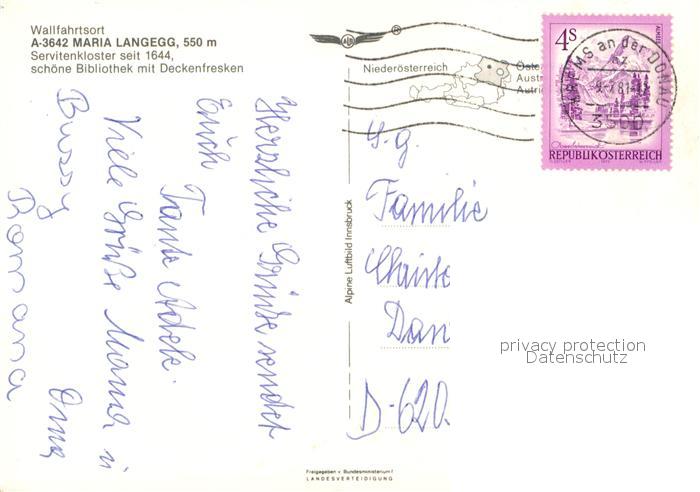 Wallfahrtsort
A-3642 MARIA LANGEGG, 550 m
Servitenkloster seit 1644,
schöne Bibliothek mit Deckenfresken
Herzliche Grüße sendet
Euch
Tante Adele.
Viele Grüße Mama u
Bussy Oma
Romana
Alpine Luftbild Innsbruck
Niederösterreich
Öste
Austr
Autri
4S
REPUBLIK ÖSTERREICH
KREMS an der DONAU
S. g.
Familie
Dan
D-620
privacy protection
Datenschutz
Freigegeben v. Bundesministerium f
LANDESVERTEIDIGUNG